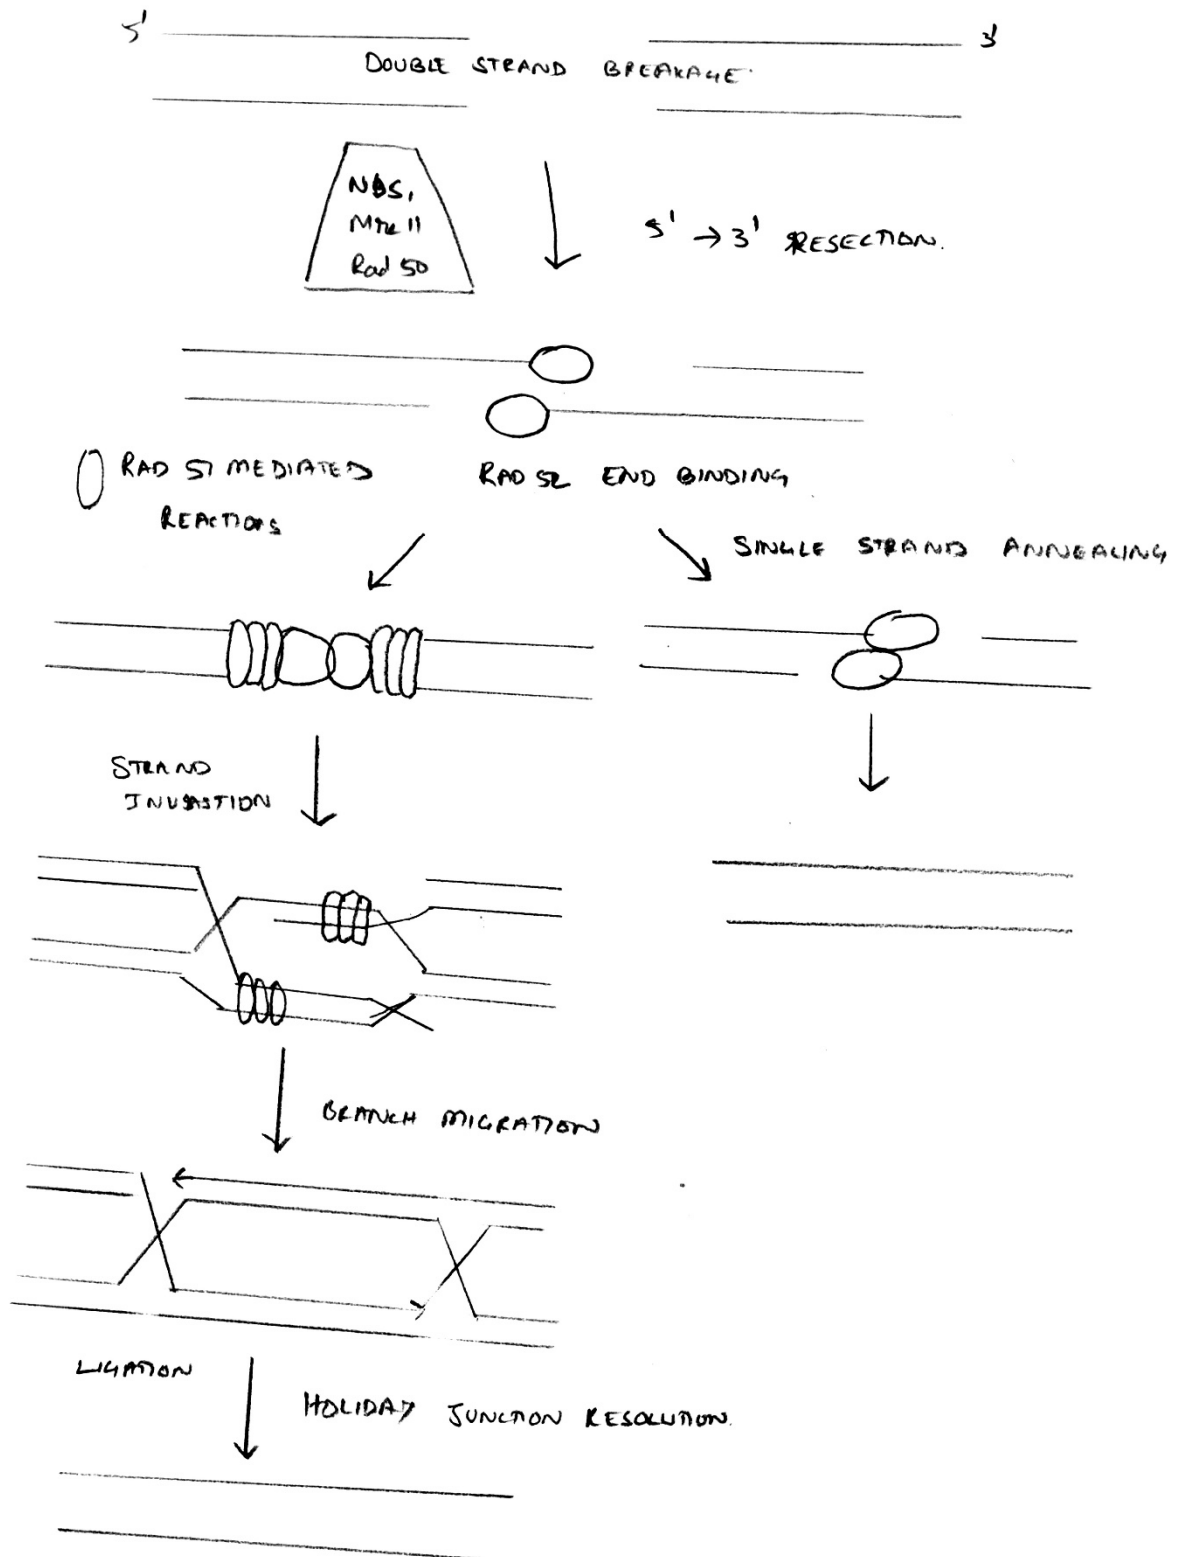 5' 3'
DOUBLE STRAND BREAKAGE
NBS1
Mre 11
Rad 50
5' → 3' RESECTION.
RAD 51 MEDIATED
REACTIONS
RAD 52 END BINDING
SINGLE STRAND ANNEALING
STRAND
INVASTION
BRANCH MIGRATION
LIGATION
HOLIDAY JUNCTION RESOLUTION.